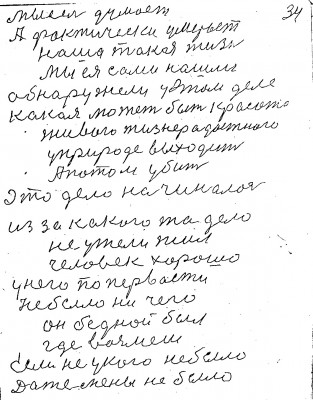 34
мысел думает
А фрактически умерает
наша такая жизн
мы ея сами нашли
обнаружели у этом деле
какая может быт красота
живого жизнерадотного
у природе выходит
А потом убит
Это дело начиналоя
из за какого та дело
не ужели жил
человек хорошо
у него по первасти
небыло ни чего
он бедной был
где возмеш
Если не у кого небыло
Даже жены не было